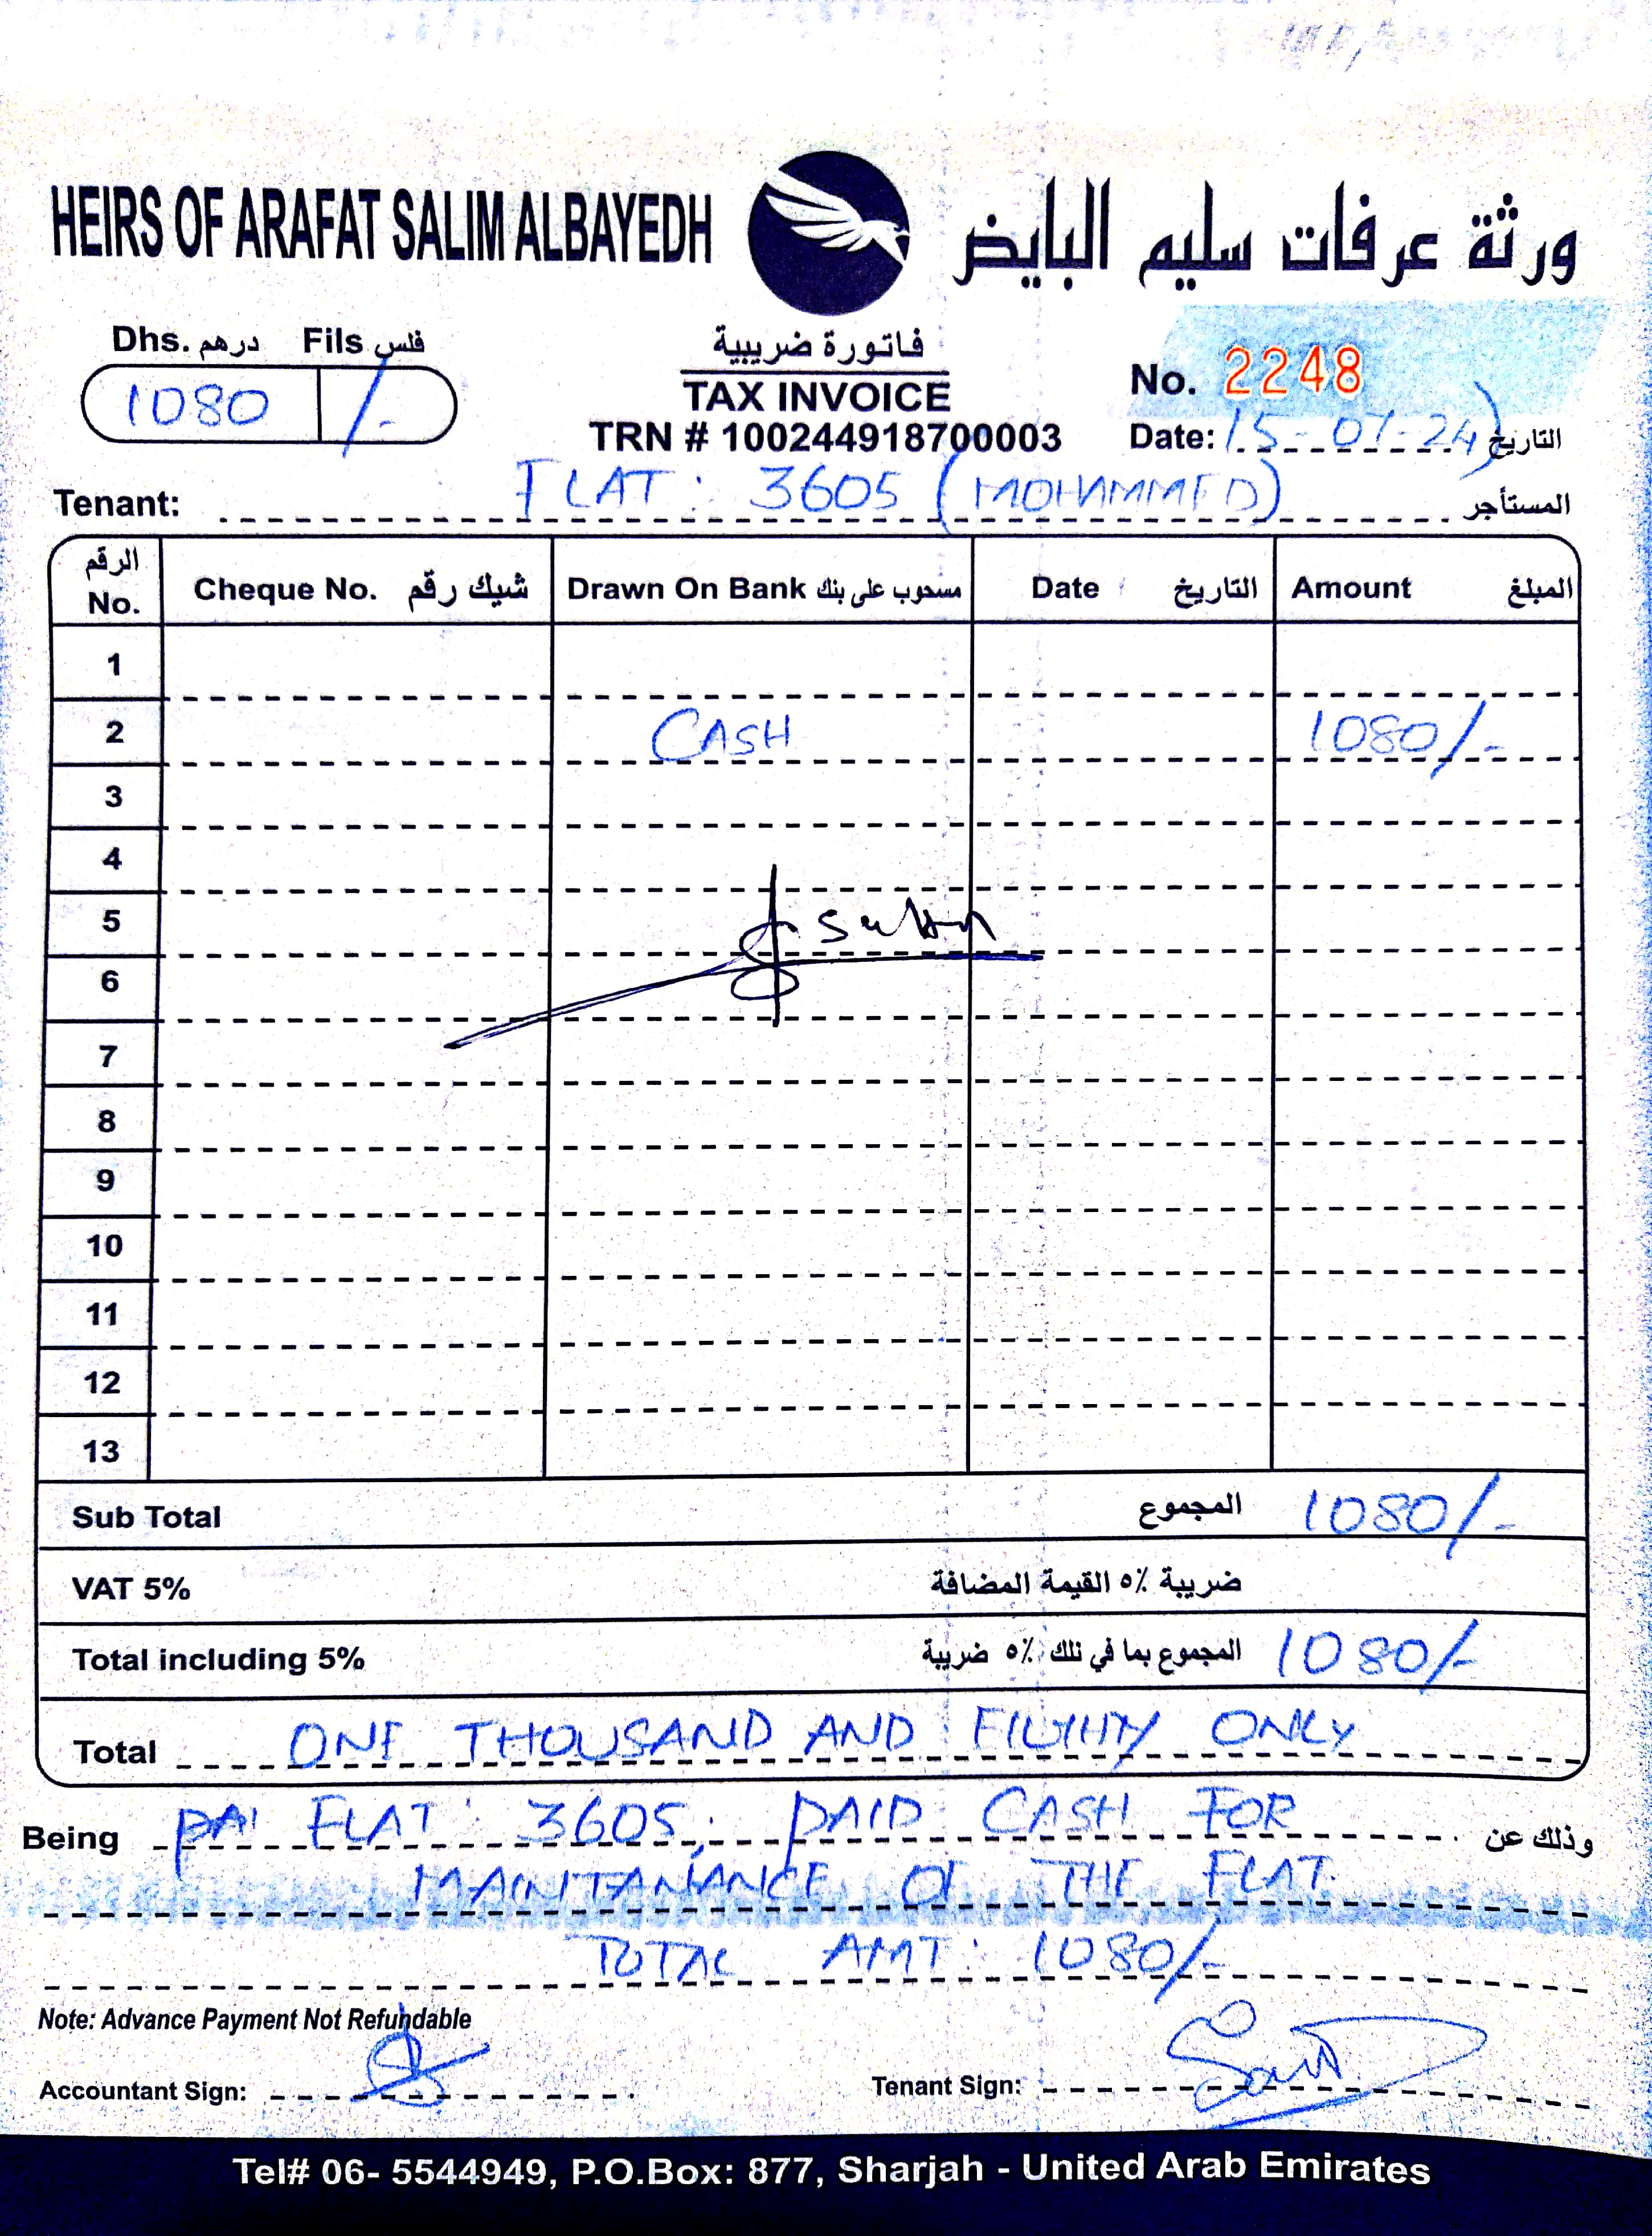 HEIRS OF ARAFAT SALIM ALBAYEDH ورثة عرفات سليم البايض
Dhs. درهم Fils فلس
1080 /-
فاتورة ضريبية
TAX INVOICE
TRN # 100244918700003
No. 2248
Date: 15-07-24 التاريخ
Tenant: FLAT: 3605 (MOHAMMED) المستأجر
الرقم No. Cheque No. شيك رقم Drawn On Bank مسحوب على بنك Date التاريخ Amount المبلغ
1
2 CASH 1080/-
3
4
5
6
7
8
9
10
11
12
13
Sub Total المجموع 1080/-
VAT 5% ضريبة ٥٪ القيمة المضافة
Total including 5% المجموع بما في ذلك ٥٪ ضريبة 1080/-
Total ONE THOUSAND AND EIGHTY ONLY
Being PAI FLAT: 3605, PAID CASH FOR وذلك عن
MAINTANANCE OF THE FLAT.
TOTAL AMT: 1080/-
Note: Advance Payment Not Refundable
Accountant Sign: Tenant Sign:
Tel# 06- 5544949, P.O.Box: 877, Sharjah - United Arab Emirates